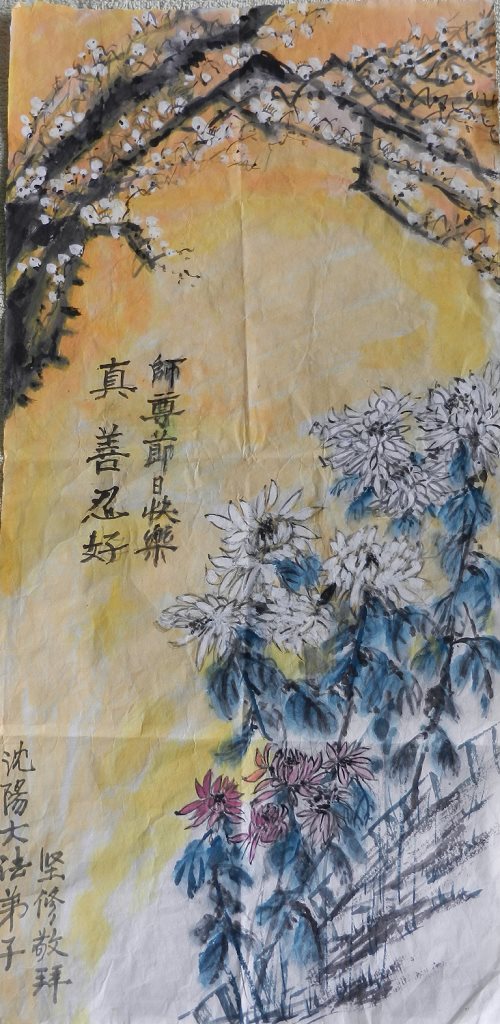 師尊節日快樂
真善忍好
沈陽大法弟子
坚修敬拜